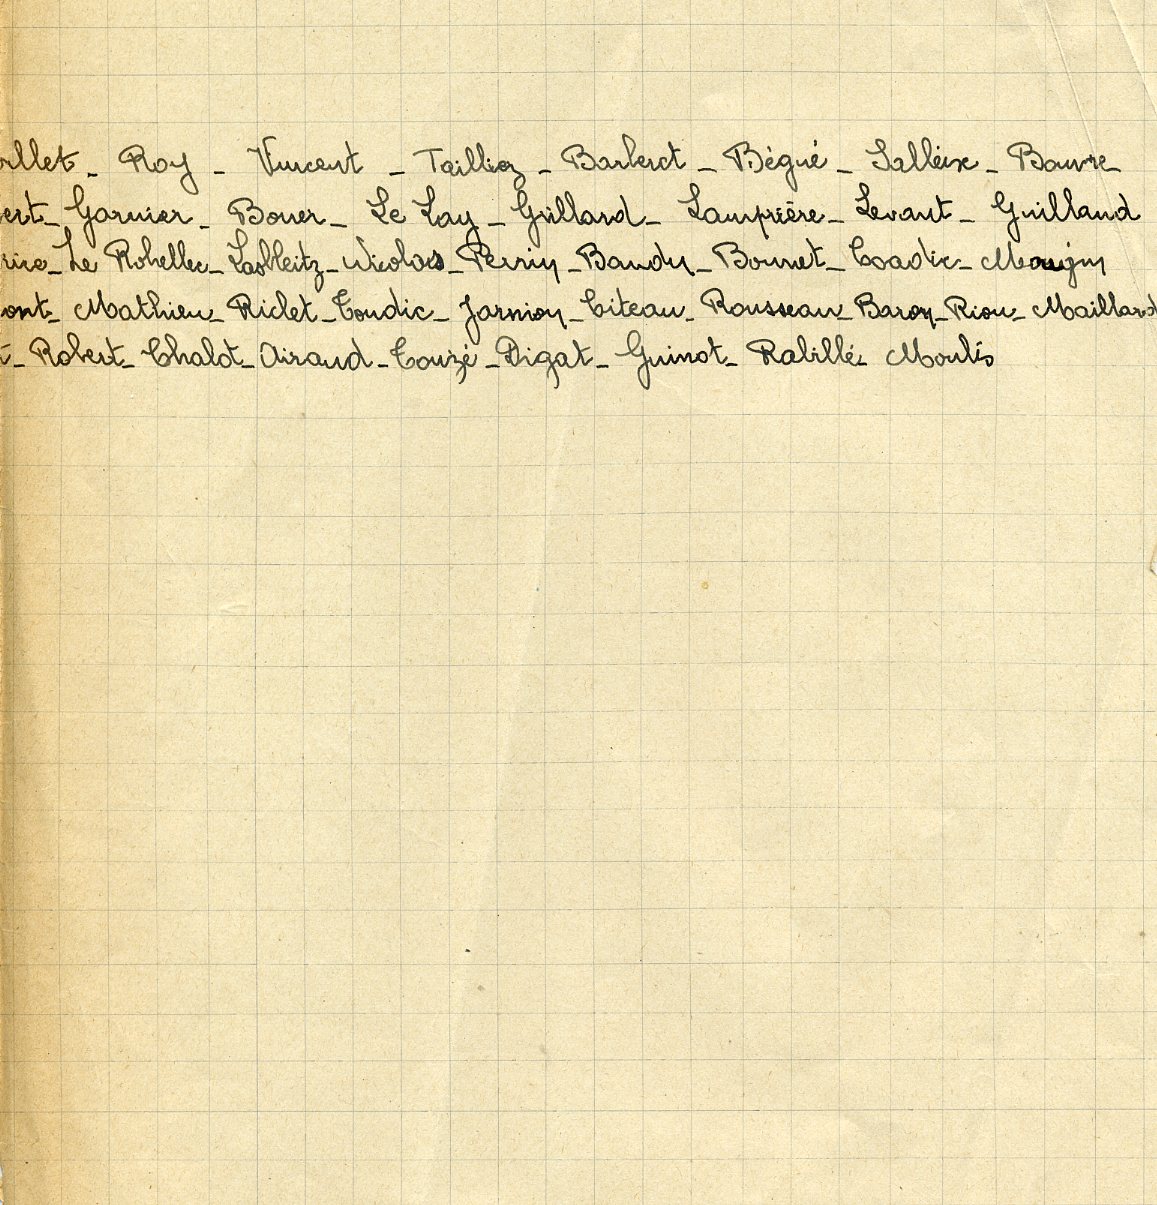 Roy _ Vincent _ Tailliez _ Barberot _ Bégué _ Salleix _ Bauvre_
Garnier _ Bouer _ Le Lay _ Guillard _ Lamprière _ Levant _ Guillaud
Le Rohellec _ Lasbleitz _ Nicolas _ Perrin _ Baudu _ Bonnet _ Coadic _ Maugin
Mathieu _ Riclet _ Coudic _ Jarnion _ Citeau _ Rousseau _ Baron _ Riou _ Maillard
Robert _ Chalot _ Airaud _ Couzé _ Digat _ Guinot _ Rabillé _ Moulis